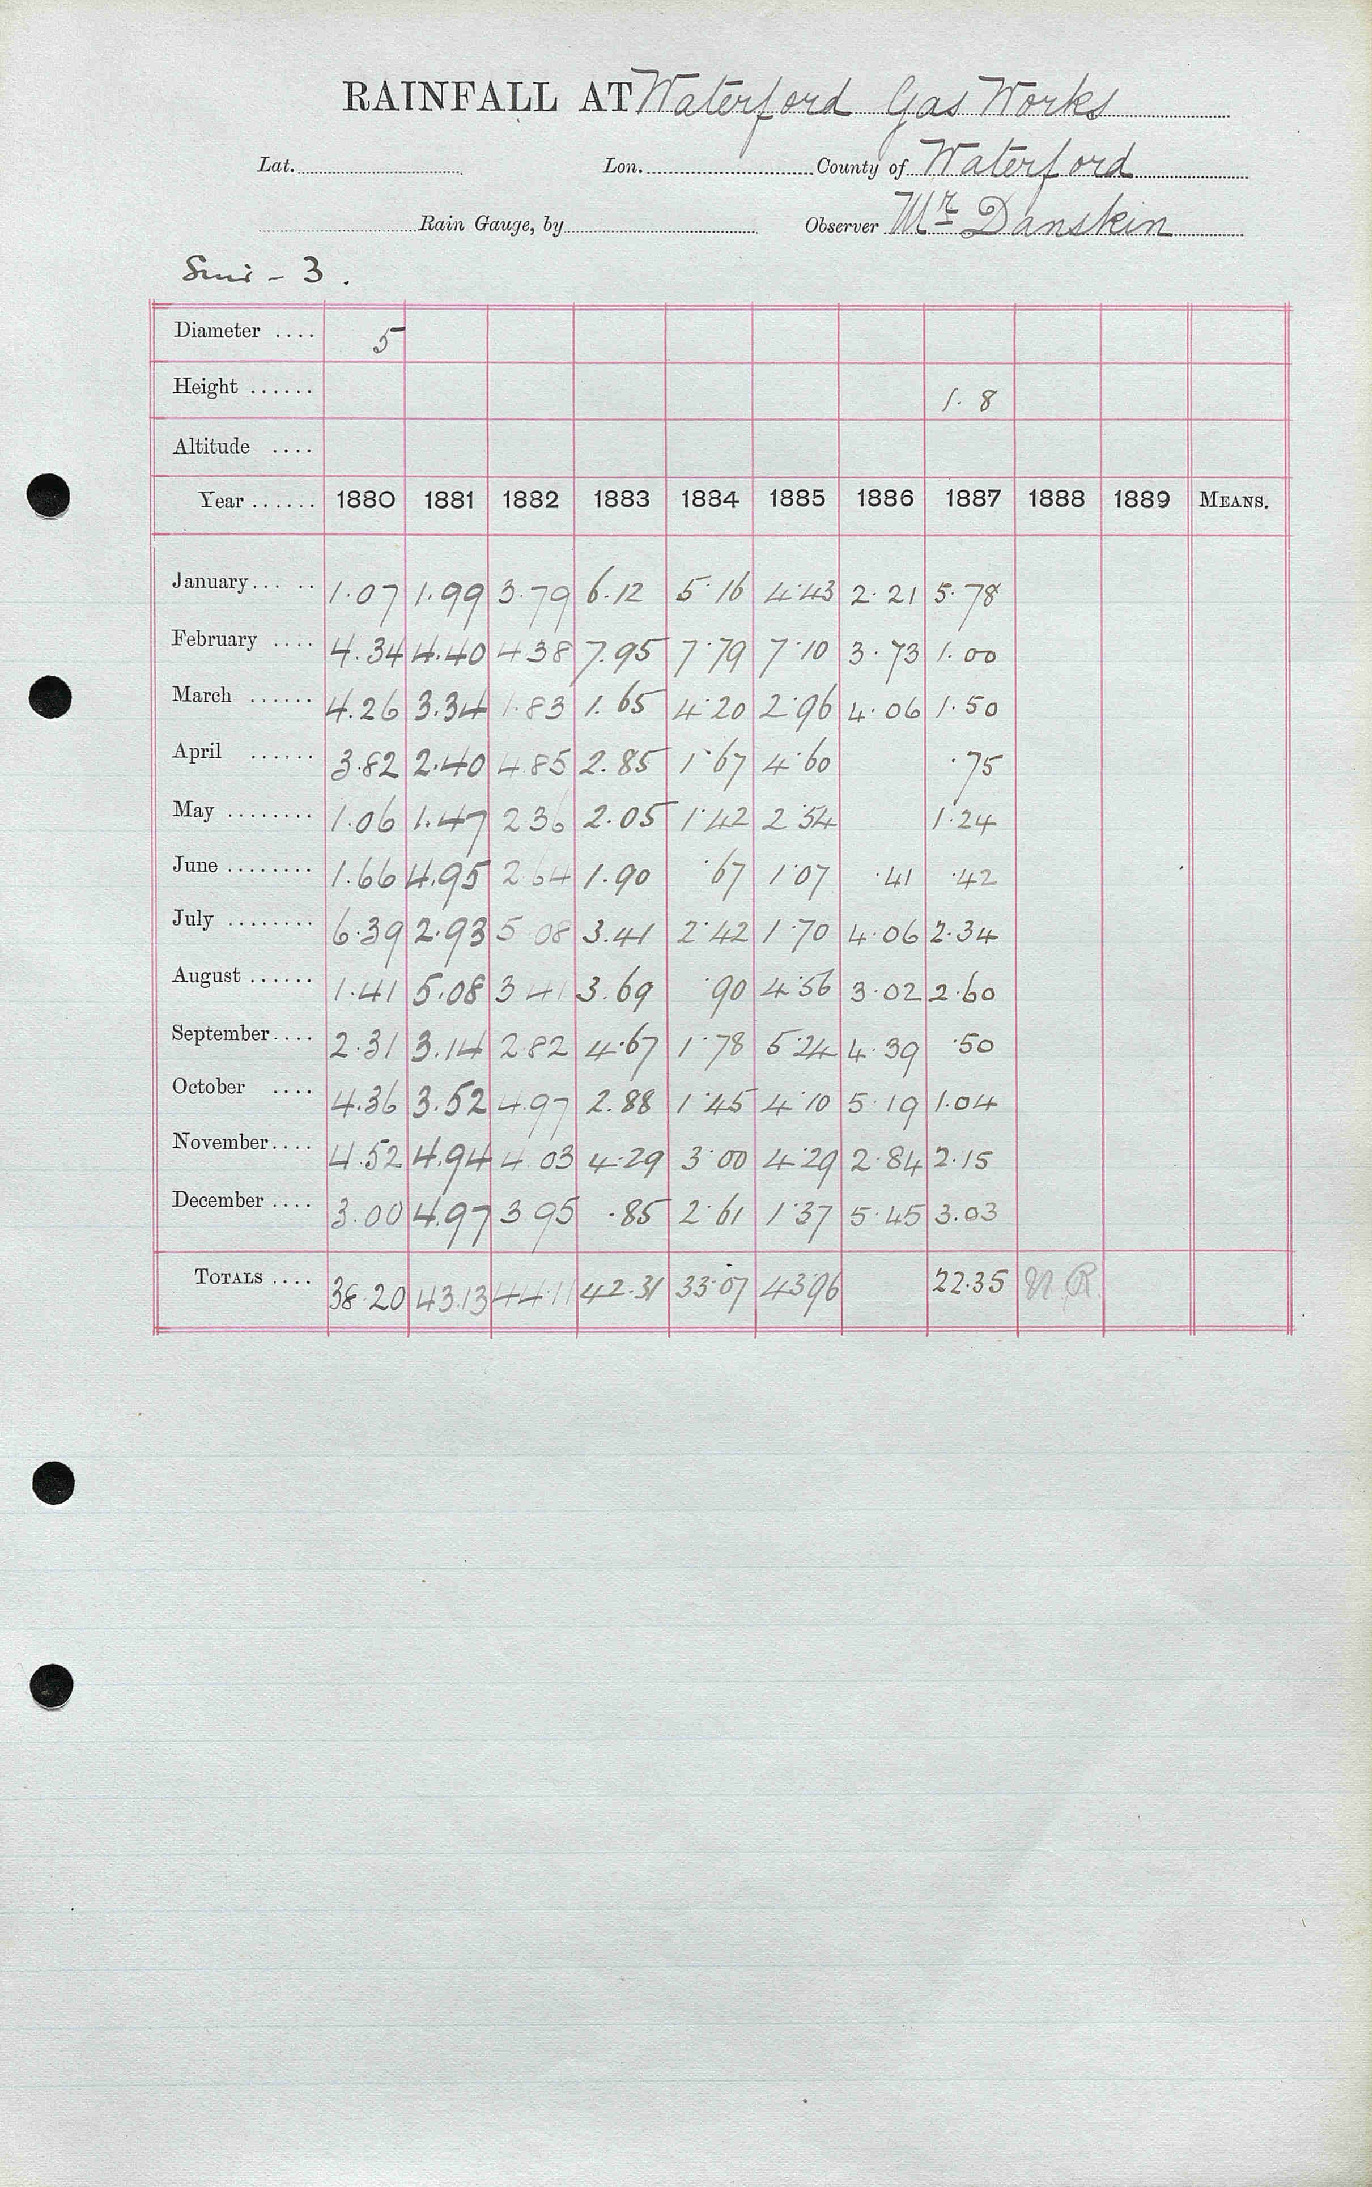 RAINFALL AT Waterford Gas Works
Lat. Lon. County of Waterford
Rain Gauge, by Observer Mr Danskin
- 3.
Diameter .... 5
Height ...... 1.8
Altitude ....
Year ...... 1880 1881 1882 1883 1884 1885 1886 1887 1888 1889 MEANS.
January ..... 1.07 1.99 3.79 6.12 5.16 4.43 2.21 5.78
February .... 4.34 4.40 4.38 7.95 7.79 7.10 3.73 1.00
March ...... 4.26 3.34 1.83 1.65 4.20 2.96 4.06 1.50
April ...... 3.82 2.40 4.85 2.85 1.67 4.60 .75
May ........ 1.06 1.47 2.36 2.05 1.42 2.54 1.24
June ........ 1.66 4.95 2.64 1.90 .67 1.07 .41 .42
July ........ 6.39 2.93 5.08 3.41 2.42 1.70 4.06 2.34
August ...... 1.41 5.08 3.41 3.69 .90 4.56 3.02 2.60
September .... 2.31 3.14 2.82 4.67 1.78 5.24 4.39 .50
October .... 4.36 3.52 4.97 2.88 1.45 4.10 5.19 1.04
November .... 4.52 4.94 4.03 4.29 3.00 4.29 2.84 2.15
December .... 3.00 4.97 3.95 .85 2.61 1.37 5.45 3.03
TOTALS .... 38.20 43.13 44.11 42.31 33.07 43.96 22.35 N.R.